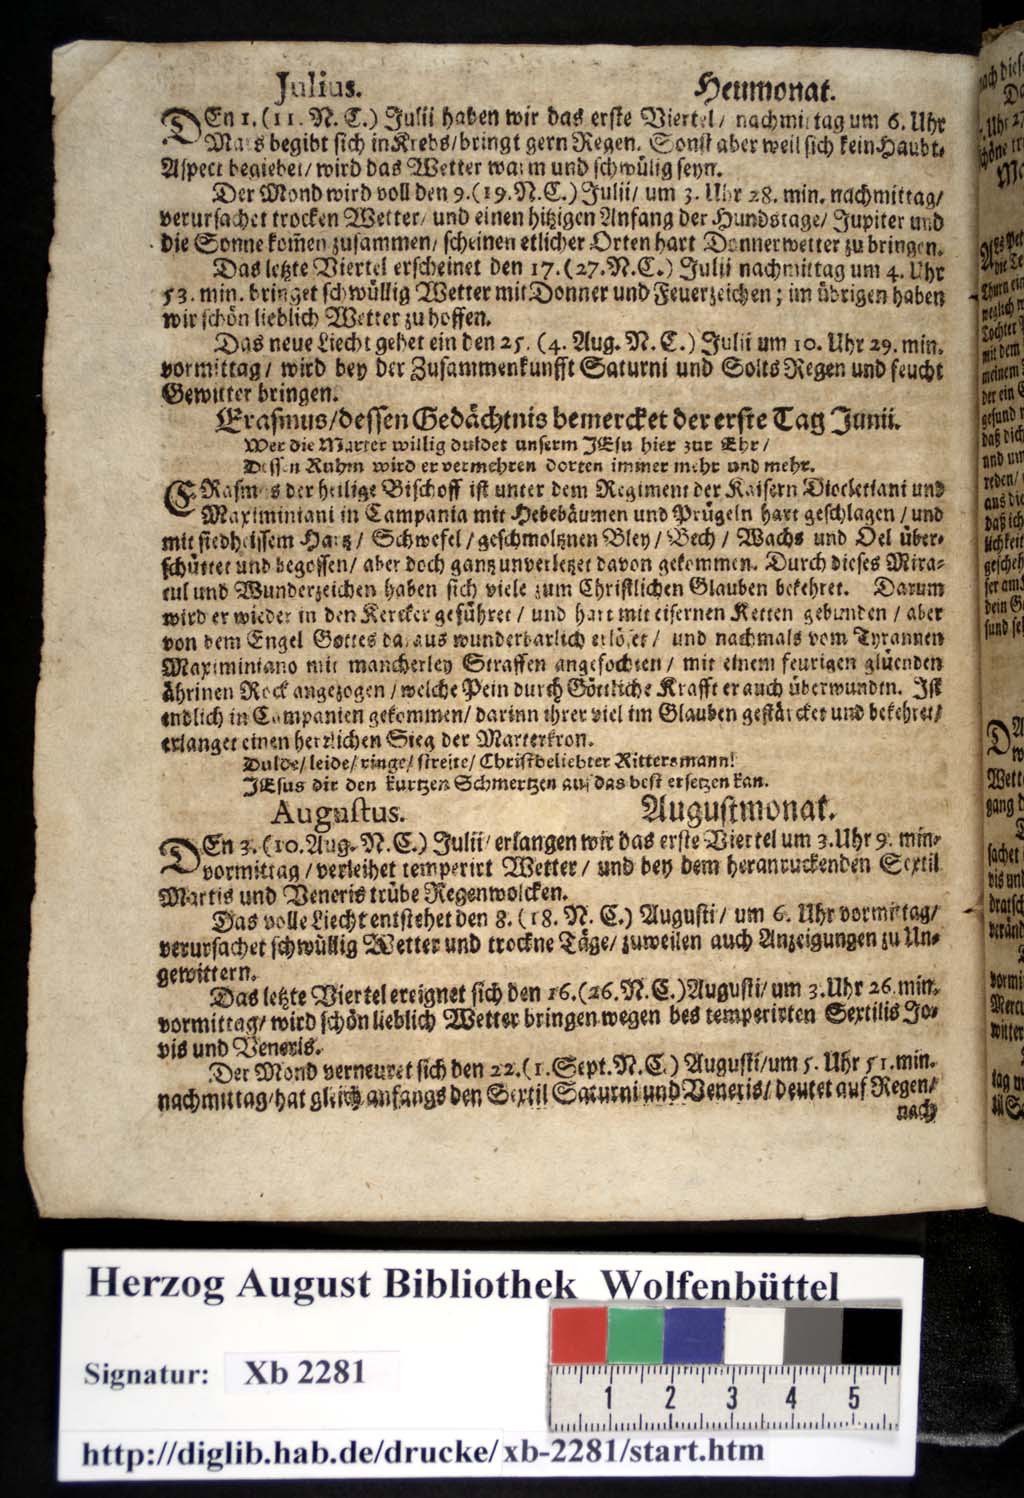 Julius. Heumonat.
DEn 1. (11. N. C.) Julii haben wir das erste Viertel/ nachmittag um 6. Uhr
Mars begibt sich in Krebs/ bringt gern Regen. Sonst aber weil sich kein Haubt-
Aspect begiebet/ wird das Wetter warm und schwülig seyn.
Der Mond wird voll den 9. (19. N. C.) Julii/ um 3. Uhr 28. min. nachmittag/
verursachet trocken Wetter/ und einen hitzigen Anfang der Hundstage/ Jupiter und
die Sonne kom̃en zusammen/ scheinen etlicher Orten hart Donnerwetter zu bringen.
Das letzte Viertel erscheinet den 17. (27. N. C.) Julii nachmittag um 4. Uhr
53. min. bringet schwüllig Wetter mit Donner und Feuerzeichen; im übrigen haben
wir schön lieblich Wetter zu hoffen.
Das neue Liecht gehet ein den 25. (4. Aug. N. C.) Julii um 10. Uhr 29. min.
vormittag/ wird bey der Zusammenkunfft Saturni und Solis Regen und feucht
Gewitter bringen.
Erasmus/ dessen Gedächtnis bemercket der erste Tag Junii.
Wer die Marter willig duldet unserm JEsu hier zur Ehr/
Dessen Ruhm wird er vermehren dorten immer mehr und mehr.
ERasmus der heilige Bischoff ist unter dem Regiment der Kaisern Diocletiani und
Maximiniani in Campania mit Hebebäumen und Prügeln hart geschlagen/ und
mit siedheissem Hartz/ Schwefel/ geschmoltznen Bley/ Bech/ Wachs und Oel über-
schüttet und begossen/ aber doch gantz unverletzet davon gekommen. Durch dieses Mira-
cul und Wunderzeichen haben sich viele zum Christlichen Glauben bekehret. Darum
wird er wieder in den Kercker geführet/ und hart mit eisernen Ketten gebunden/ aber
von dem Engel Gottes daraus wunderbarlich erlöset/ und nachmals vom Tyrannen
Maximiniano mit mancherley Straffen angefochten/ mit einem feurigen glüenden
ährinen Rock angezogen/ welche Pein durch Göttliche Krafft er auch überwunden. Ist
endlich in Campanien gekommen/ darinn ihrer viel im Glauben gestärcket und bekehret/
erlanget einen herrlichen Sieg der Marterkron.
Dulde/ leide/ ringe/ streite/ Christbeliebter Rittersmann!
JEsus dir den kurtzen Schmertzen auf das best ersetzen kan.
Augustus. Augustmonat.
DEn 3. (10. Aug. N. C.) Julii/ erlangen wir das erste Viertel um 3. Uhr 9. min.
vormittag/ verleihet temperirt Wetter/ und bey dem heranruckenden Sextil
Martis und Veneris trübe Regenwolcken.
Das volle Liecht entstehet den 8. (18. N. C.) Augusti/ um 6. Uhr vormittag/
verursachet schwüllig Wetter und trockne Täge/ zuweilen auch Anzeigungen zu Un-
gewittern.
Das letzte Viertel ereignet sich den 16. (26. N. C.) Augusti/ um 3. Uhr 26. min.
vormittag/ wird schön lieblich Wetter bringen wegen des temperirten Sextilis Jo-
vis und Veneris.
Der Mond verneuret sich den 22. (1. Sept. N. C.) Augusti/ um 5. Uhr 51. min.
nachmittag/ hat gleich anfangs den Sextil Saturni und Veneris/ deutet auf Regen/
nach
Herzog August Bibliothek Wolfenbüttel
Signatur: Xb 2281
1 2 3 4 5
http://diglib.hab.de/drucke/xb-2281/start.htm